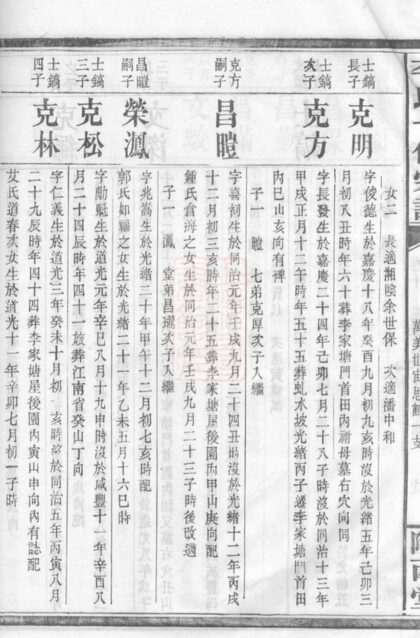 女二 長適湘陰余世保 次適潘中和
士鎬長子
克明
字俊德生於嘉慶十八年癸酉九月初九亥時沒於光緒五年己卯三
月初八丑時年六十葬李家塘門首田內祔母墓右穴向同
士鎬次子
克方
字長發生於嘉慶二十四年己卯七月二十八子時沒於同治十三年
甲戌正月十二午時年五十五葬虬木坡光緒丙子遷李家塘門首田
內巳山亥向有碑
子一 暟 七弟克厚次子入繼
克方嗣子
昌暟
字喜祠生於同治元年壬戌九月二十四丑時沒於光緒十二年丙戌
十二月初三亥時年二十五葬李家塘屋後園內甲山庚向配
鍾氏倉海之女生於同治元年壬戌九月二十三子時後改適
子一 鳳 堂弟昌瓏次子入繼
昌暟嗣子
榮鳳
字兆嵩生於光緒二十年甲午十二月初七亥時配
郭氏如福之女生於光緒二十一年乙未五月十六巳時
士鎬三子
克松
字勛魁生於道光元年辛巳八月十九申時沒於咸豐十一年辛酉八
月二十四辰時年四十一啟葬江南省癸山丁向
士鎬四子
克林
字仁義生於道光三年癸未十月初 亥時沒於同治五年丙寅八月
二十九辰時年四十四葬李家塘屋後園內寅山申向內有誌配
艾氏道春次女生於道光十一年辛卯七月初一子時